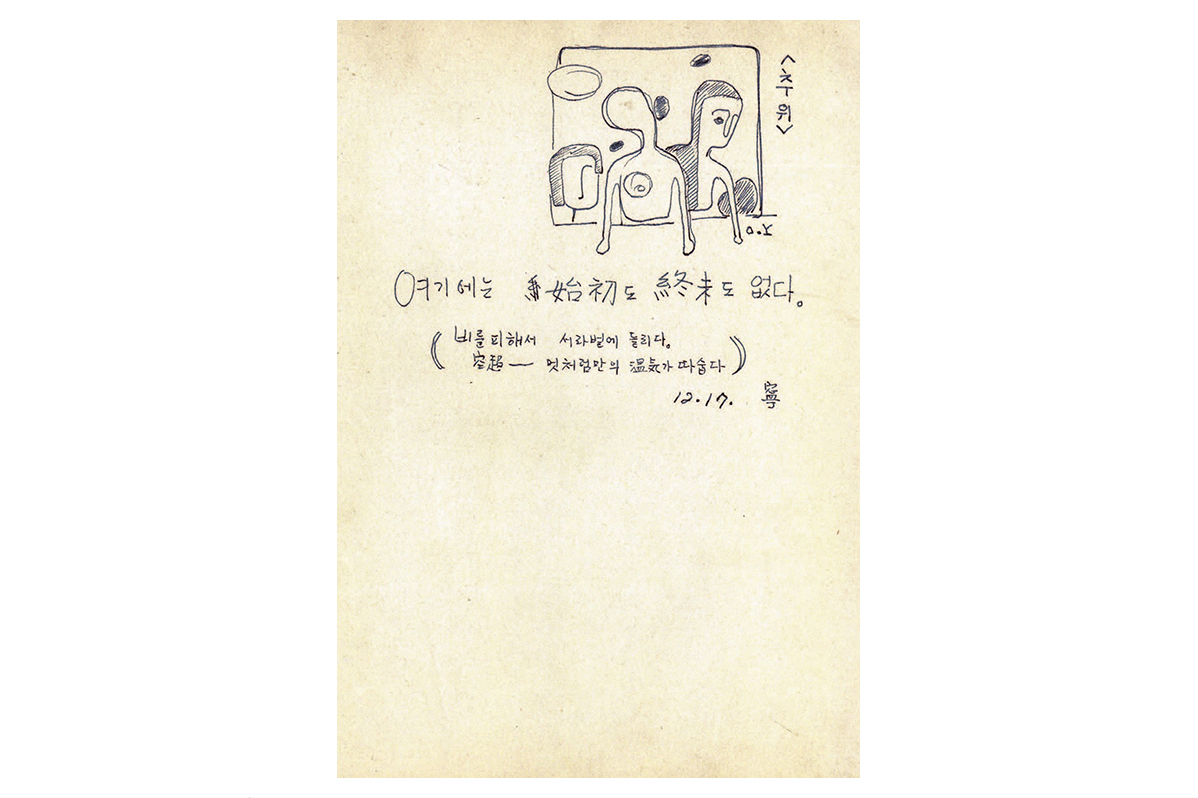 <추위>
여기에는 始初도 終末도 없다。
(비를 피해서 서라벌에 들리다。
空超— 멋처럼만의 温気가 따숩다)
12.17. 寧